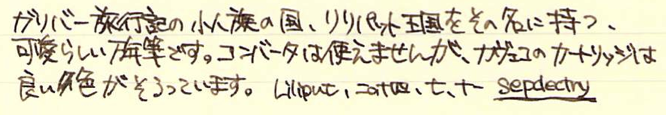 ガリバー旅行記の小人族の国、リリパット王国をその名に持つ、
可愛らしい万年筆です。コンバータは使えませんが、カヴェコのカートリッジは
良い色がそろっています。 Liliput,